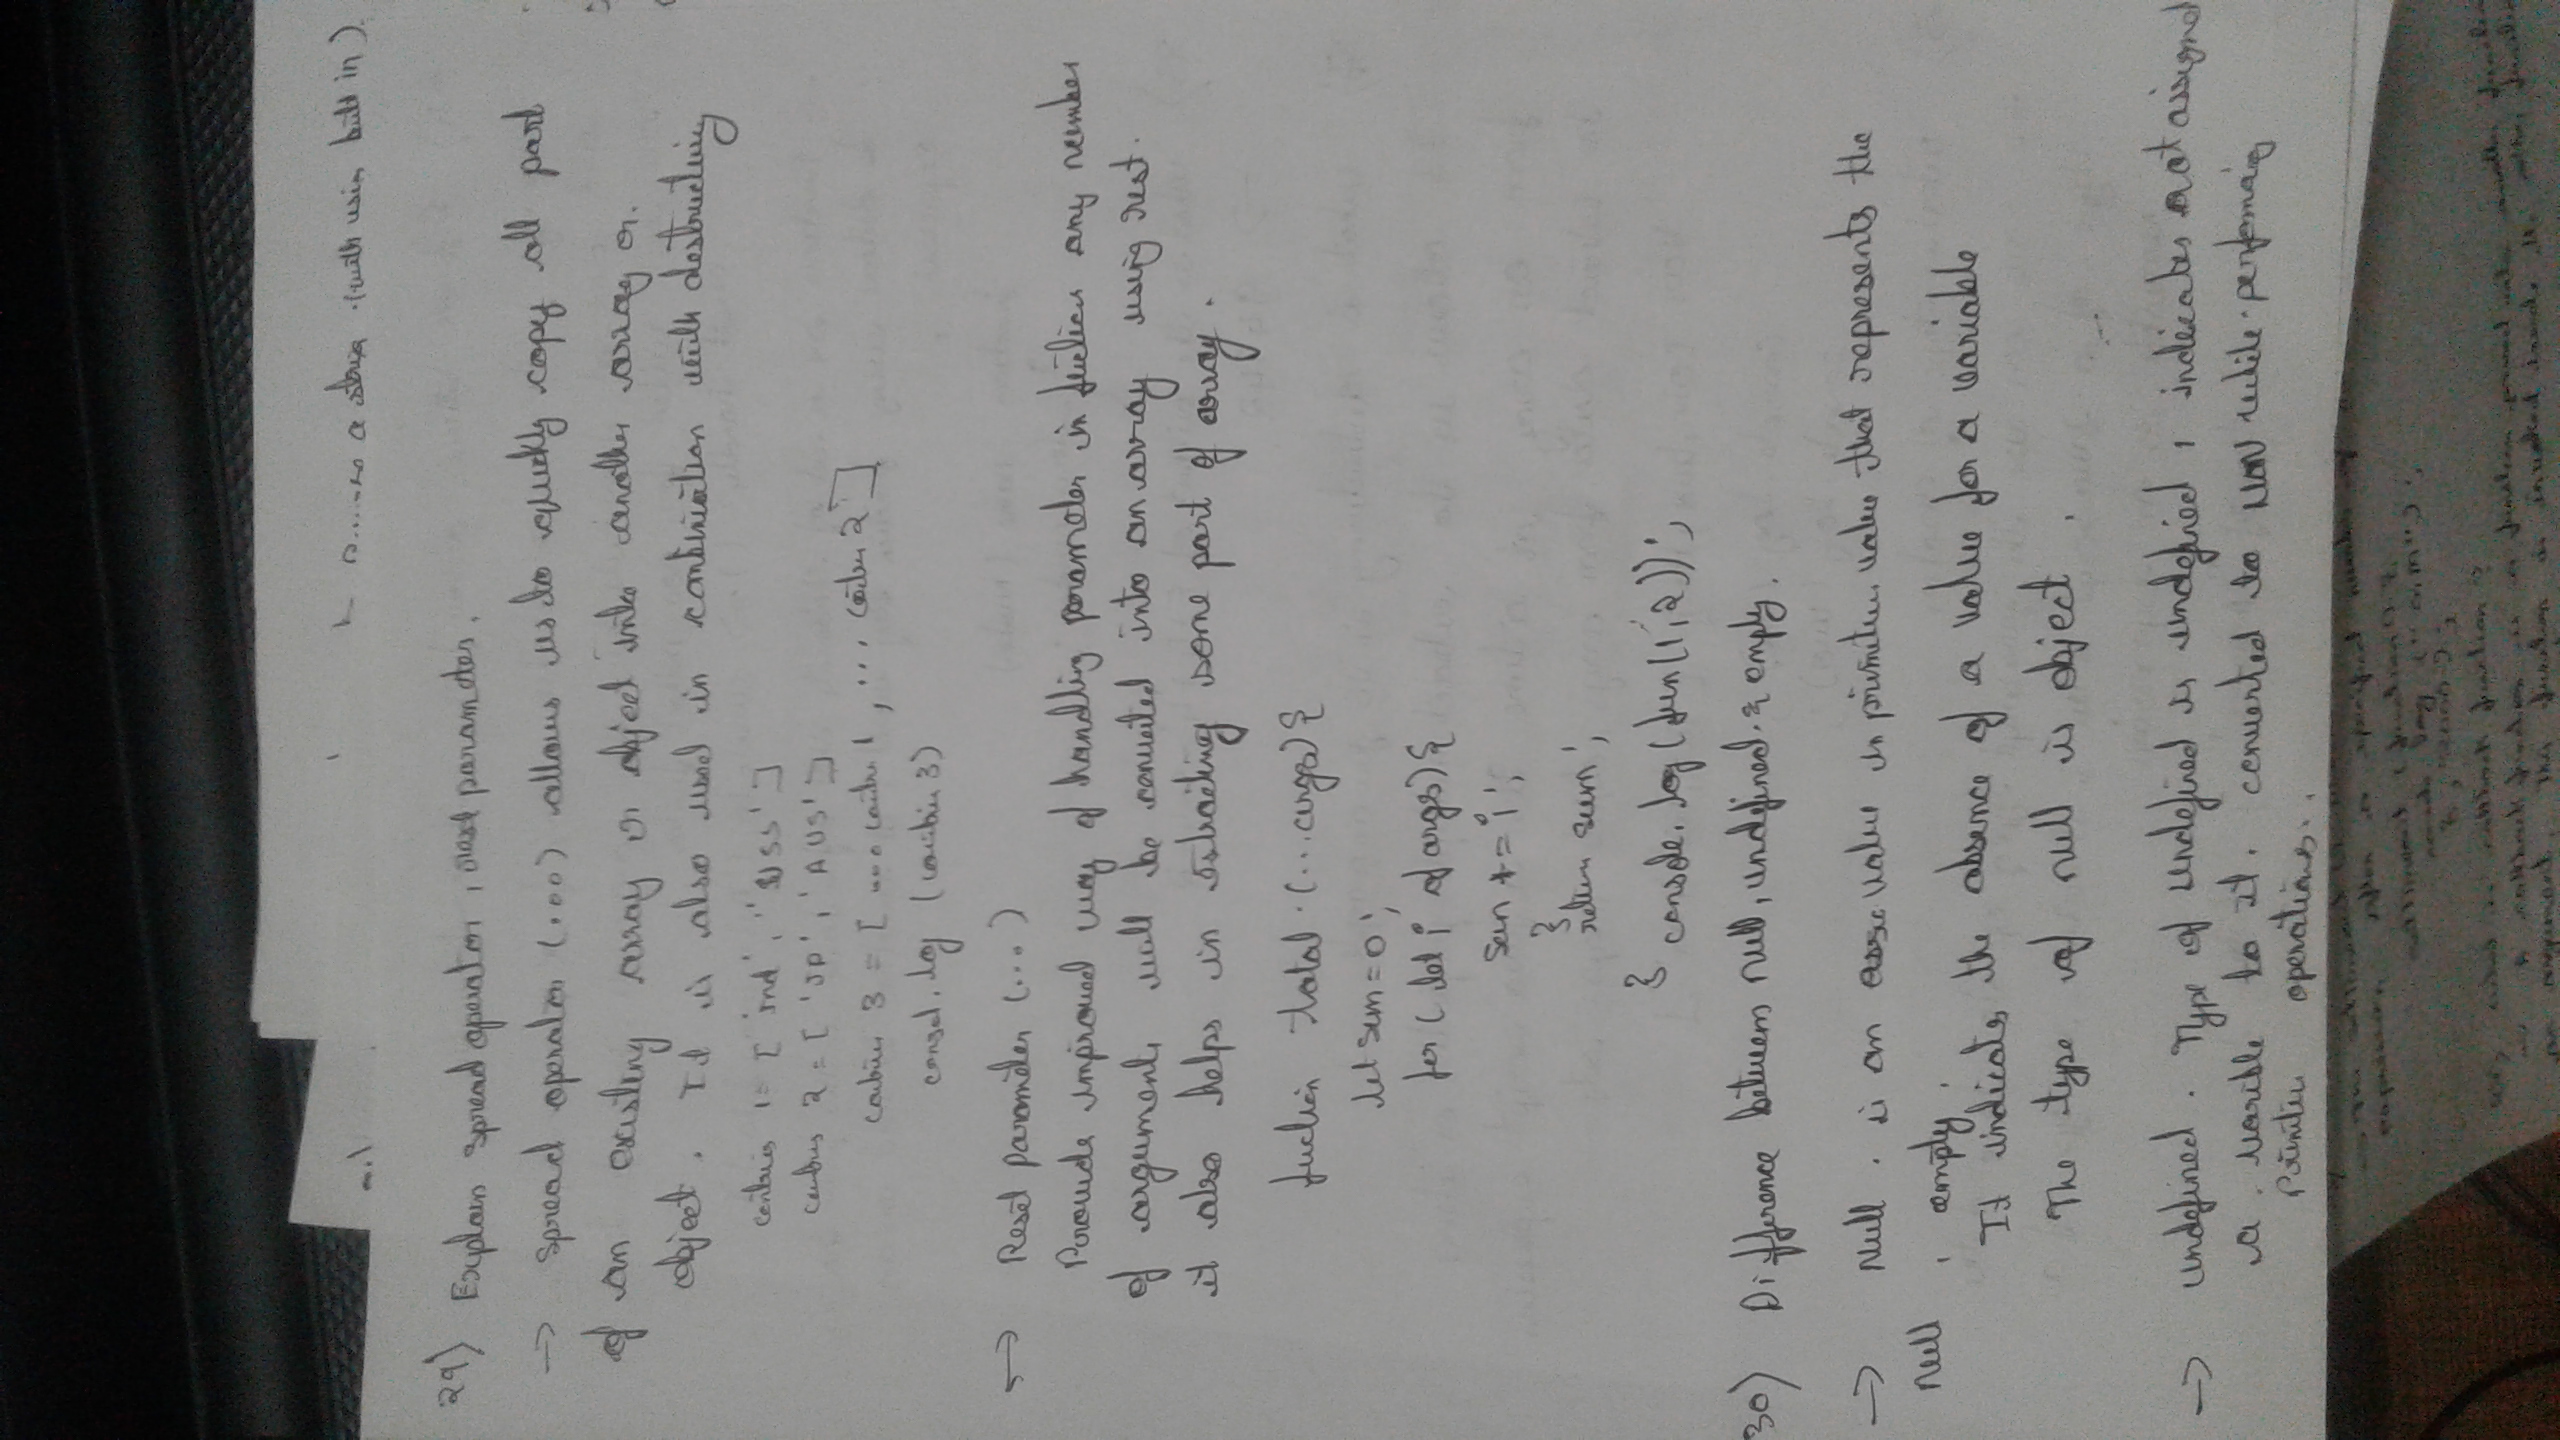 a string (with usin built in).
29) Explain spread operator, rest parameter.
→ spread operator (...) allows us to quickly copy all part
of an existing array or object into another array or
object. It is also used in combiniation with destructuing
1 = [ 'ind', 'USS' ]
2 = [ 'JP', 'AUS' ]
3 = [ ... 1, ... 2 ]
consol.log ( 3)
→ Reset Parameter (...)
Provide improved way of handling parameter in fuction any number
of arguments will be converted into an array using rest.
it also helps in extracting some part of array.
fuction total (...args) {
let sum = 0;
for ( let i of args) {
sum += i;
}
return sum;
} console.log (fun(1,2));
30) Difference between null, undefined & empty.
→ Null . is an value is primitive value that represents the
null , empty.
It indicates the absence of a value for a variable
The type of null is object .
→ undefined . Type of undefined is undefined , indicates not assigned
a varible to it. converted to NaN while performing
operations..